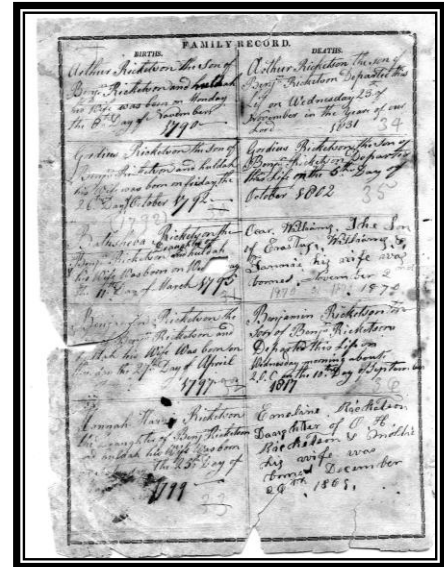 FAMILY RECORD.
BIRTHS.
Arthur Ricketson the Son of
Benjn Ricketson and huldah
his Wife was born on Monday
the Day of November
1790
Gordius Ricketson the son of
Benjn Ricketson and huldah
his Wife was born on friday the
Day October 1792
(1792)
Ricketson the
Daughter of
Benjn Ricketson and huldah
his Wife Was born on
the 11th Day of March 1795
Benjamin Ricketson the
Ricketson and
his Wife Was born on
the 27th Day of April
1797
Hannah Ricketson
the Daughter of Benjn Ricketson
and huldah his Wife Was born
the 23d Day of
1799
DEATHS.
Arthur Ricketson the son of
Benjn Ricketson Departed this
life on Wednesday 23 of
November in the Year of our
Lord 1831 34
Gordius Ricketson the son of
Benjn Ricketson Departed
this Life on the 5th Day of
October 1802
35
Williams, the Son
of Erastus Williams &
his wife was
borned November 2
1872
Benjamin Ricketson the
Son of Benjn Ricketson
Departed this Life on
Wednesday morning about
2.O.C. on the 10th Day of September
1817
Emoline Ricketson
Daughter of O. H.
Ricketson & Mollie
his wife was
borned December
29th 1868.